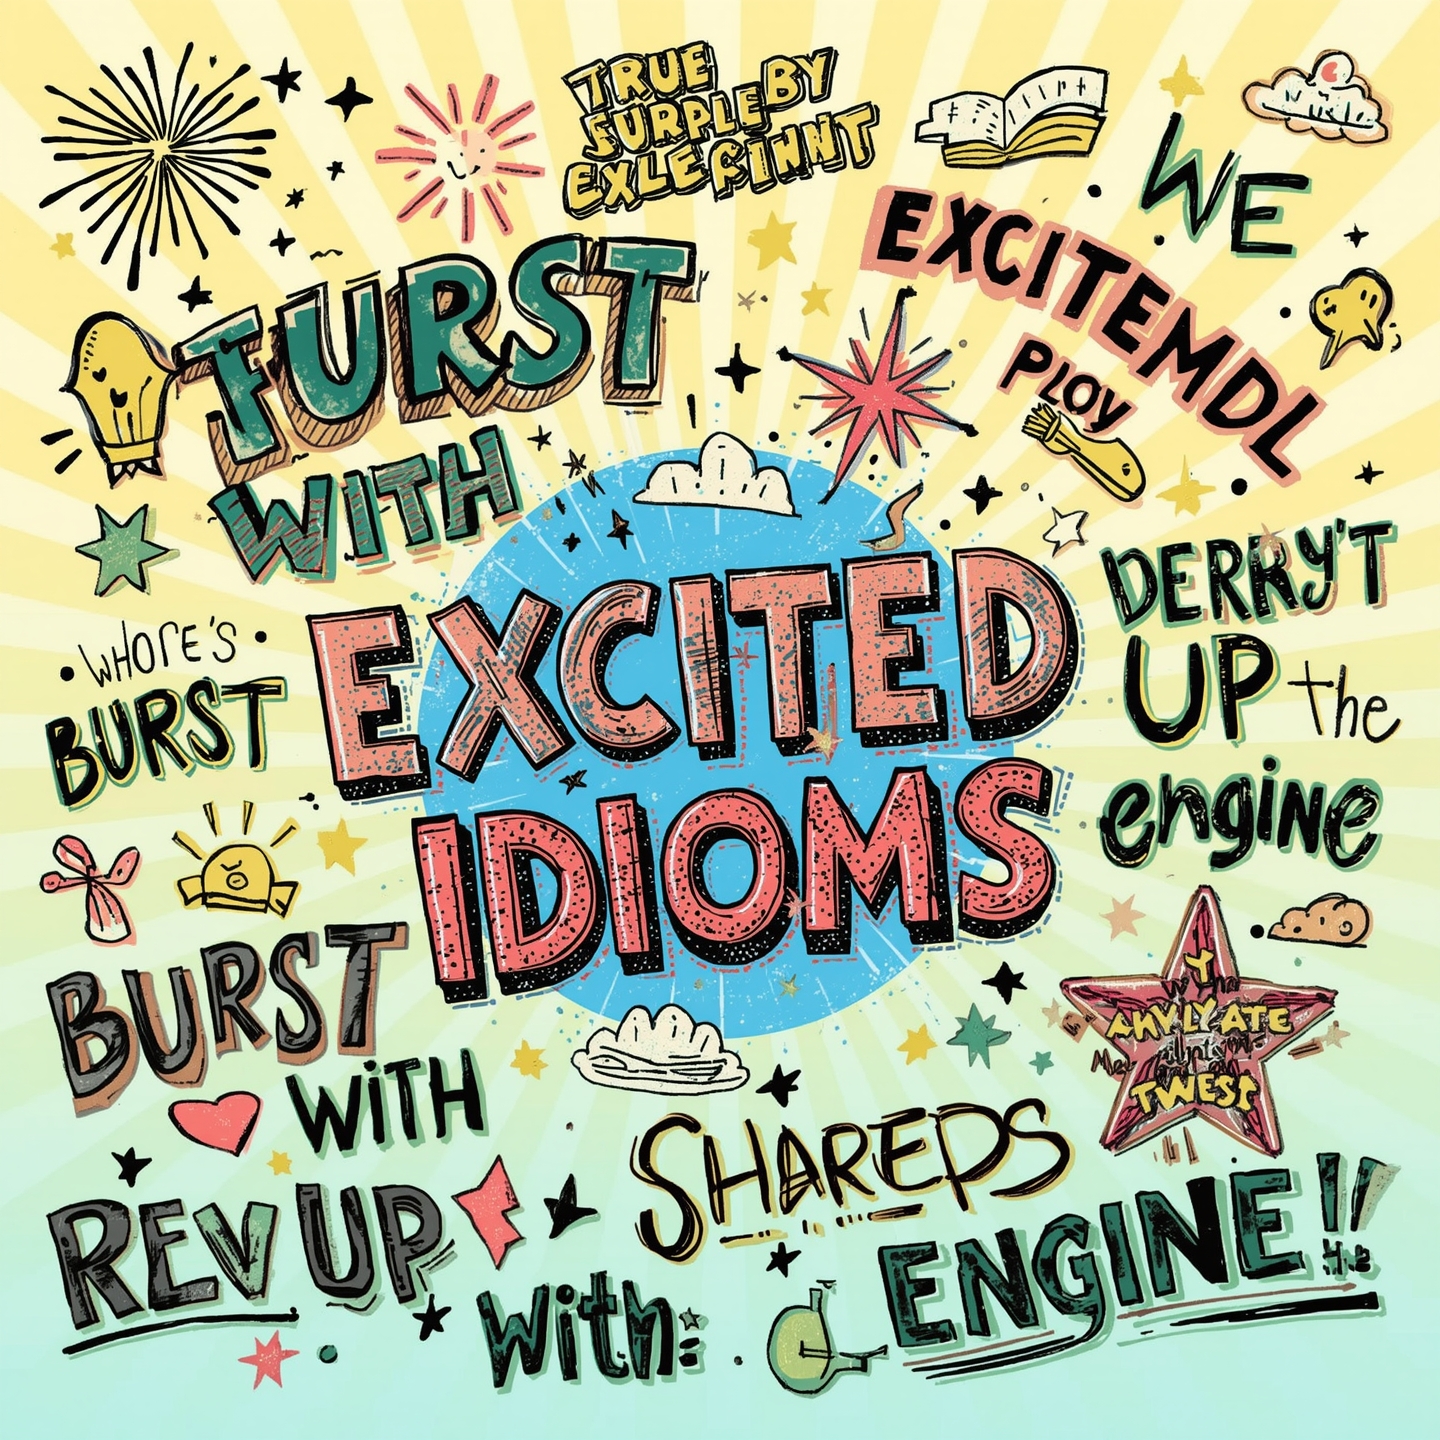 TRUE
SURPLEBY
EXLERINNT
WE
EXCITEMDL
PLOY
FURST
WITH
EXCITED
IDIOMS
WHORE'S
BURST
DERRY'T
UP the
engine
BURST
WITH
REV UP
SHAREDS
With:
ENGINE!!
AHVLY ATE
TWEST